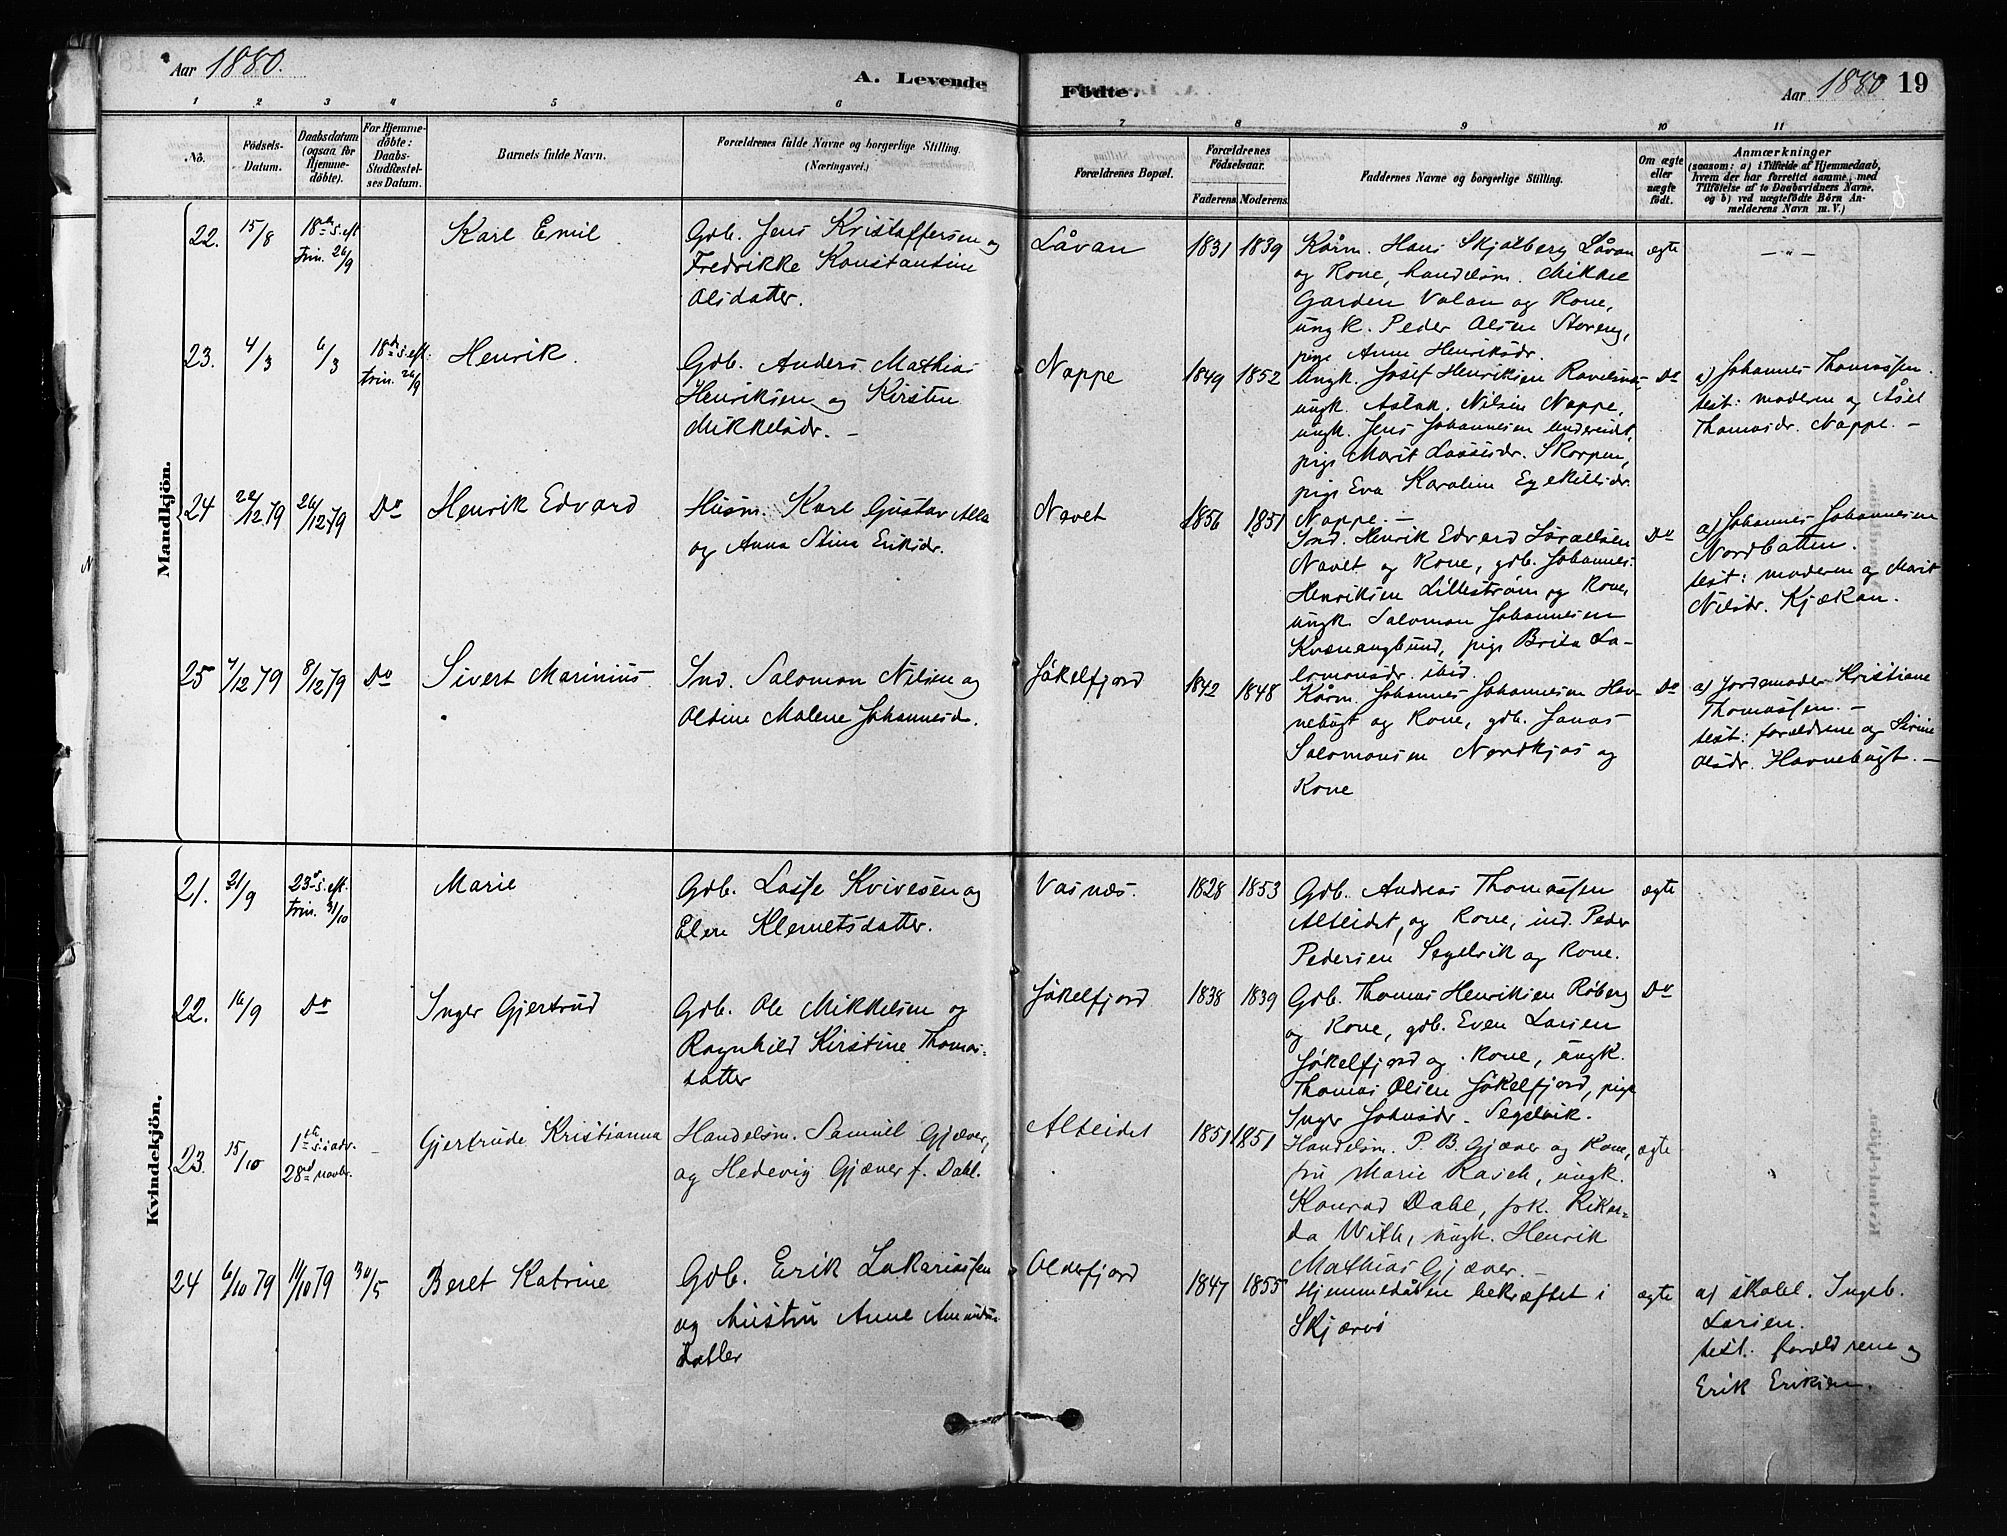 Aar 1880.
A. Levende
Fødte.
Aar 1880
19
1 2 3 4 5 6 7 8 9 10 11
No.
Fødsels-
Datum.
Daabsdatum
(ogsaa for
Hjemme-
døbte).
For Hjemme-
døbte:
Daabs-
Stadfæstel-
ses Datum.
Barnets fulde Navn.
Forældrenes fulde Navne og borgerlige Stilling.
(Næringsvei.)
Forældrenes Bopæl.
Forældrenes
Fødselsaar.
Faderens.
Moderens.
Faddernes Navne og borgerlige Stilling.
Om ægte
eller
uægte
født.
Anmærkninger
(saasom: a) i Tilfælde af Hjemmedaab,
hvem der har forrettet samme, med
Tilføielse af to Daabsvidners Navne.
og b) ved uægtefødte Børn An-
melderens Navn m. V.)
Mandkjön.
22.
15/8
18de s. eft
trin. 26/9
Karl Emil
Gdb. Jens Kristoffersen og
Fredrikke Konstantine
Olsdatter.
Låvan
1831
1839
Kårm. Hans Skjolberg Låvan
og Kone, handelsm. Mikkel
Garden Valan og Kone,
ungk. Peder Olsen Storeng,
pige Anne Henriksdr.
ægte
— " —
23.
4/3
6/3
18de s. eft.
trin. 26/9
Henrik.
Gdb. Anders Mathias
Henriksen og Kirsten
Mikkelsdr. —
Nappe
1849
1852
Ungk. Josef Henriksen
ungk. Aslak Nilsen Nappe,
ungk. Jens Johannesen
pige Marit Lassesdr. Skorpen,
pige Eva Karoline
Nappe. —
Do
a) Johannes Thomassen.
test: moderen og
Thomasdr. Nappe. —
24
22/12 79
26/12 79
Do
Henrik Edvard
Husm. Karl Gustav
og Anna Stina Eriksdr.
Navet
1856
1851
Ind. Henrik Edvard Isralsen
Navet og Kone, gdb. Johannes
Henriksen Lillestrøm og Kone,
ungk. Salomon Johannesen
Kvænangbund, pige Brita Sa-
lomonsdr. ibid.
Do
a) Johannes Johannesen
Nordbotten.
test: moderen og Marit
Nilsdr. Kjækan.
25
7/12 79
8/12 79
Do
Sivert Marinius
Ind. Salomon Nilsen og
Oldine Malene Johannesd.
Jøkelfjord
1842
1848
Kårm. Johannes Johannesen Hav-
nebugt og Kone, gdb. Jonas
Salomonsen Nordkjos og
Kone
Do
a) Jordemoder Kristiane
Thomassen. —
test: forældrene og
Olsdr. Havnebugt. —
Kvindekjön.
21.
21/9
23de s. eft.
trin. 31/10
Marie
Gdb. Lasse Kvivesen og
Elen Klemetsdatter.
Vasnæs.
1828
1853
Gdb. Andreas Thomassen
Alteidet, og Kone, ind. Peder
Pedersen Segelvik og Kone.
ægte
22.
16/9
Do
Inger Gjertrud
Gdb. Ole Mikkelsen og
Ragnhild Kirstine Thomas-
datter
Jøkelfjord
1838
1839
Gdb. Thomas Henriksen Røberg
og Kone, gdb. Even Larsen
Jøkelfjord og Kone, ungk.
Thomas Olsen Jøkelfjord, pige
Inger Johnsdr. Segelvik.
Do
23.
15/10
1ste s. i adv.
28de novbr.
-
Gjertrude Kristianna
Handelsm. Samuel Gjæver,
og Hedevig Gjæver f. Dahl.
Alteidet
1851
1851
Handelsm. P. B. Gjæver og Kone,
fru Marie Rasch, ungk.
Konrad Dahl, frk. Rikar-
da With, ungk. Henrik
Mathias Gjæver. —
ægte
24
6/10 79
19/10 79
30/5
Beret Katrine
Gdb. Erik Zakariassen
og hustru Anne Amunds-
datter
Olderfjord
1847
1855
Hjemmedåben bekræftet i
Skjærvø
ægte
a) skolel. Ingeb.
Larsen.
test. forældrene og
Erik Eriksen.